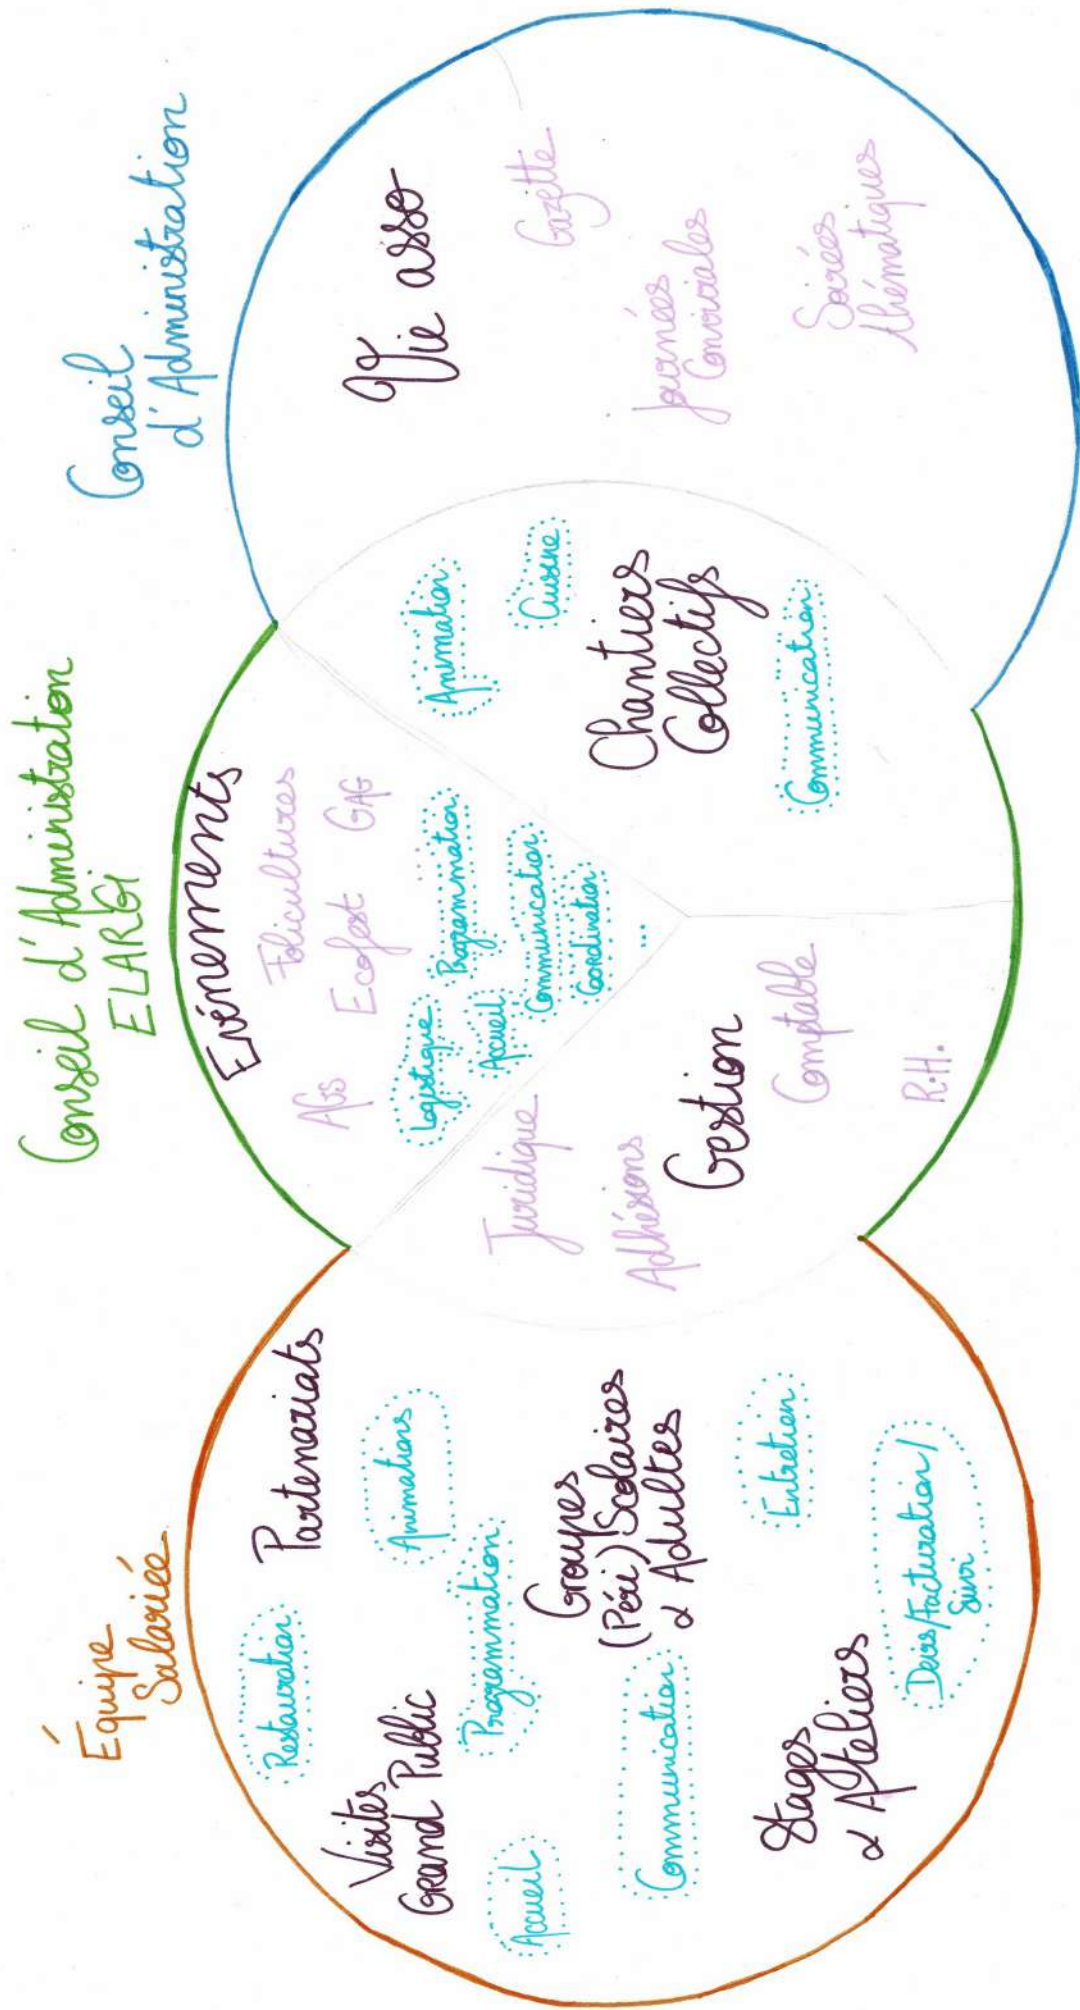 Équipe
Salariée
Restauration
Partenariats
Visites
Grand Public
Animations
Accueil
Programmation
Groupes
(Péri) Scolaires
& Adultes
Communication
Entretien
Stages
& Ateliers
Devis/Facturation/
Suivi
Conseil d'Administration
ELARGI
Evénements
AGs
Foliecultures
Ecofest GAG
Logistique
Programmation
Accueil
Communication
Coordination
...
Juridique
Adhésions
Gestion
Comptable
R.H.
Animation
Cuisine
Chantiers
Collectifs
Communication
Conseil
d'Administration
Vie asso
Gazette
Journées
Conviviales
Soirées
thématiques